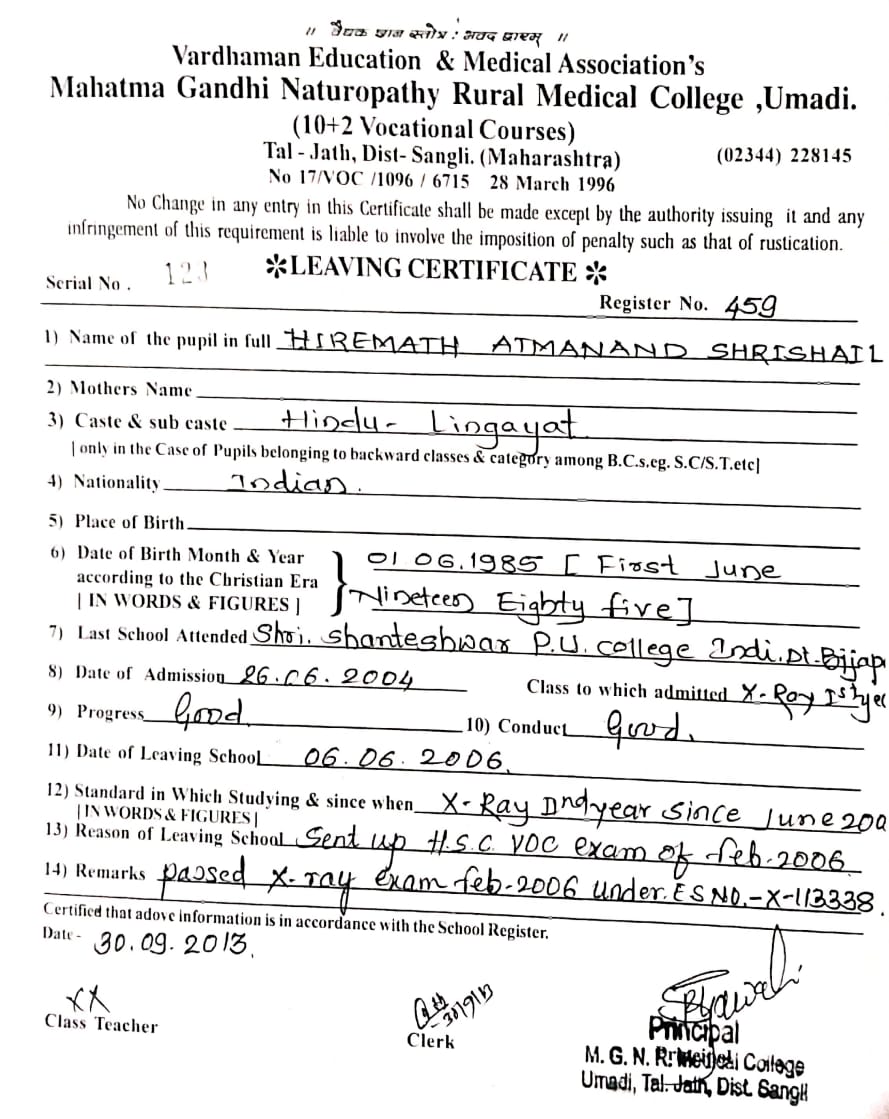 ॥ वैद्यक छात्र स्तोत्र : भवद् द्वारम् ॥
Vardhaman Education & Medical Association's
Mahatma Gandhi Naturopathy Rural Medical College ,Umadi.
(10+2 Vocational Courses)
Tal - Jath, Dist- Sangli. (Maharashtra) (02344) 228145
No 17/VOC /1096 / 6715 28 March 1996
No Change in any entry in this Certificate shall be made except by the authority issuing it and any
infringement of this requirement is liable to involve the imposition of penalty such as that of rustication.
✻LEAVING CERTIFICATE ✻
Serial No . 123
Register No. 459
1) Name of the pupil in full HIREMATH ATMANAND SHRISHAIL
2) Mothers Name
3) Caste & sub caste Hindu - Lingayat
[only in the Case of Pupils belonging to backward classes & category among B.C.s.eg. S.C/S.T.etc]
4) Nationality Indian.
5) Place of Birth
6) Date of Birth Month & Year 01 06.1985 [ First June
according to the Christian Era
[ IN WORDS & FIGURES ] Nineteen Eighty five]
7) Last School Attended Shri. Shanteshwar P.U. College Indi. Dt. Bijap
8) Date of Admission 26.06.2004 Class to which admitted X-Ray Ist yea
9) Progress Good 10) Conduct Good.
11) Date of Leaving School 06.06.2006.
12) Standard in Which Studying & since when X-Ray IInd year since June 200
[IN WORDS & FIGURES]
13) Reason of Leaving School Sent up H.S.C. VOC exam of feb-2006
14) Remarks passed X-ray exam feb-2006 under. ES NO.-X-113338.
Certified that adove information is in accordance with the School Register.
Date - 30.09.2013.
Class Teacher
30/9/13
Clerk
Principal
M. G. N. R. Medical College
Umadi, Tal. Jath, Dist. Sangli